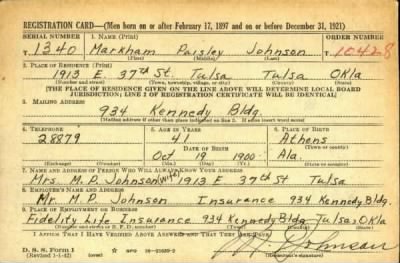 REGISTRATION CARD—(Men born on or after February 17, 1897 and on or before December 31, 1921)
SERIAL NUMBER 1. NAME (Print) ORDER NUMBER
T 1340 Markham Paisley Johnson 10428
(First) (Middle) (Last)
2. PLACE OF RESIDENCE (Print)
1913 E. 37th St. Tulsa Tulsa Okla
(Number and street) (Town, township, village, or city) (County) (State)
[THE PLACE OF RESIDENCE GIVEN ON THE LINE ABOVE WILL DETERMINE LOCAL BOARD
JURISDICTION; LINE 2 OF REGISTRATION CERTIFICATE WILL BE IDENTICAL]
3. MAILING ADDRESS
934 Kennedy Bldg.
[Mailing address if other than place indicated on line 2. If same insert word same]
4. TELEPHONE 5. AGE IN YEARS 6. PLACE OF BIRTH
28879 41 Athens
DATE OF BIRTH (Town or county)
Oct 19 1900 Ala.
(Exchange) (Number) (Mo.) (Day) (Yr.) (State or country)
7. NAME AND ADDRESS OF PERSON WHO WILL ALWAYS KNOW YOUR ADDRESS
Mrs. M. P. Johnson (wife) 1913 E 37th St Tulsa
8. EMPLOYER'S NAME AND ADDRESS
Mr. M. P. Johnson Insurance 934 Kennedy Bldg.
9. PLACE OF EMPLOYMENT OR BUSINESS
Fidelity Life Insurance 934 Kennedy Bldg Tulsa Okla
(Number and street or R. F. D. number) (Town) (County) (State)
I AFFIRM THAT I HAVE VERIFIED ABOVE ANSWERS AND THAT THEY ARE TRUE.
D. S. S. Form 1
(Revised 1-1-42) (over)
Johnson